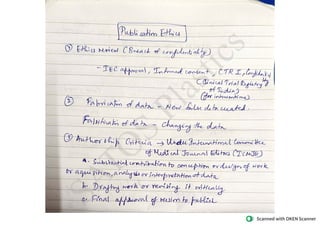 Publication Ethics
① Ethics review (Breach of confidentiality)
- IEC approval, Informed consent, CTRI, Confidentiality
(Clinical Trial Registry
of India)
(for interventions)
② Fabrication of data - New false data created.
Falsification of data - Changing the data
③ Authorship Criteria → Under International Committee
of Medical Journal Editors (ICMJE)
a. Substantial contribution to conception or design of work
or aquisition, analysis or interpretation of data
b. Drafting work or revising it critically
c. Final approval of version to publish
Scanned with OKEN Scanner